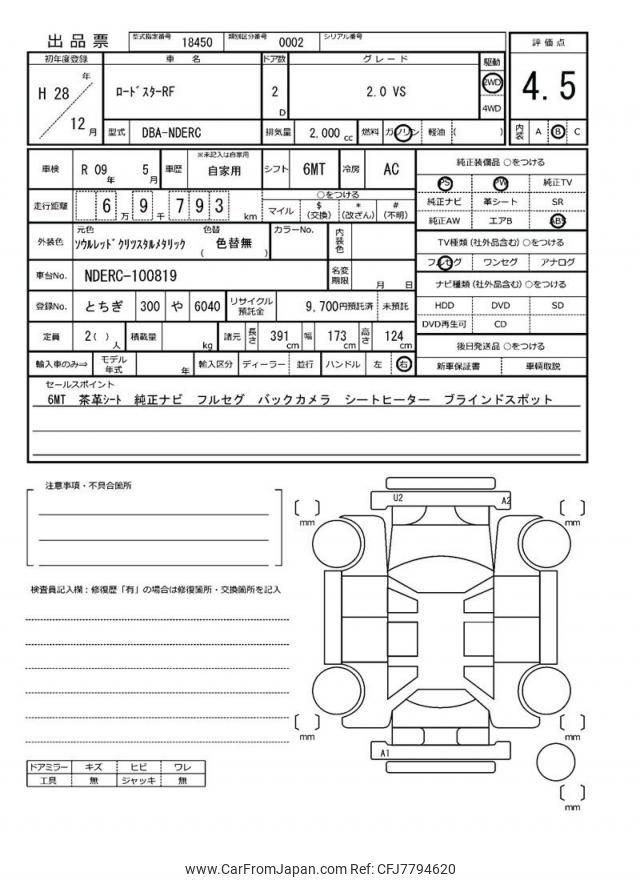 出品票 型式指定番号 18450 類別区分番号 0002 シリアル番号
初年度登録 車名 ドア数 グレード 駆動 評価点
H 28 年 12 月 ﾛｰﾄﾞｽﾀｰRF 2 D 2.0 VS 2WD 4WD 4.5
型式 DBA-NDERC 排気量 2,000 cc 燃料 ガソリン 軽油 ( ) 内装 A B C
車検 R 09 年 5 月 車歴 ※未記入は自家用 自家用 シフト 6MT 冷房 AC
純正装備品 ○をつける
PS PW 純正TV
走行距離 6 万 9 千 7 9 3 km ○をつける
マイル $ (交換) * (改ざん) # (不明)
純正ナビ 革シート SR
純正AW エアB ABS
外装色 元色 ｿｳﾙﾚｯﾄﾞｸﾘｽﾀﾙﾒﾀﾘｯｸ 色替 ( 色替無 ) カラーNo. 内装色
TV種類 (社外品含む) ○をつける
フルセグ ワンセグ アナログ
車台No. NDERC-100819 名変期限 月 日
ナビ種類 (社外品含む) ○をつける
登録No. とちぎ 300 や 6040 リサイクル預託金 9,700円預託済 未預託
HDD DVD SD
DVD再生可 CD
定員 2( ) 人 積載量 kg 諸元 長さ 391 cm 幅 173 cm 高さ 124 cm
後日発送品 ○をつける
輸入車のみ⇒ モデル年式 年 輸入区分 ディーラー 並行 ハンドル 左 右
新車保証書 車輌取説
セールスポイント
6MT 茶革ｼｰﾄ 純正ナビ フルセグ バックカメラ シートヒーター ブラインドスポット
注意事項・不具合箇所
U2 A2
mm mm
検査員記入欄：修復歴「有」の場合は修復箇所・交換箇所を記入
mm mm
A1
ドアミラー キズ ヒビ ワレ
工具 無 ジャッキ 無
mm
www.CarFromJapan.com Ref: CFJ7794620